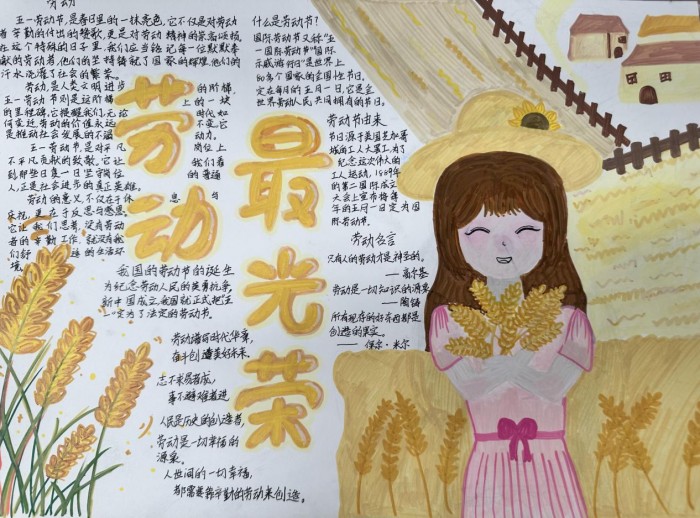 劳动
五一劳动节,是春日里的一抹亮色,它不仅是对劳动
者辛勤的付出的赞歌,更是对劳动精神的崇高颂扬,
在这个特殊的日子里,我们应当铭记每一位默默奉
献的劳动者,他们的坚韧铸就了国家的辉煌,他们的
汗水浇灌了社会的繁荣。
劳动,是人类文明进步的阶梯,
五一劳动节则是这阶梯上的一块
的里程碑,它提醒我们,无论时代如
何变迁,劳动的价值永远不变,它
是推动社会发展的不竭动力。
五一劳动节,是对平凡岗位上
不平凡贡献的致敬,它让我们看
到那些日复一日坚守岗位的普通
人,正是社会进步的真正英雄。
劳动的意义,不仅在于休息与
庆祝,更在于反思与感恩。
它让我们思考,没有劳动
者的辛勤工作,就没有我
们舒适的生活环
境。
我国的劳动节的诞生
为纪念劳动人民的英勇抗争,
新中国成立,我国就正式把"五
一"定为了法定的劳动节。
劳动谱写时代华章,
奋斗创造美好未来。
志不求易者成,
事不避难者进
人民是历史的创造者,
劳动是一切幸福的
源泉。
人世间的一切幸福,
都需要靠辛勤的劳动来创造。
劳动
最光荣
什么是劳动节?
国际劳动节又称"五
一国际劳动节""国际
示威游行日"是世界上
80多个国家的全国性节日。
定在每月的五月一日,它是全
世界劳动人民共同拥有的节日。
劳动节由来
节日源于美国芝加哥
城的工人大罢工,为了
纪念这次伟大的
工人运动,1889年
的第二国际成立
大会上宣布将每
年的五月一日定为国
际劳动节。
劳动名言
只有人的劳动才是神圣的。
——高尔基
劳动是一切知识的源泉
——陶铸
所有现存的好东西都是
创造的果实。
——保尔·米尔